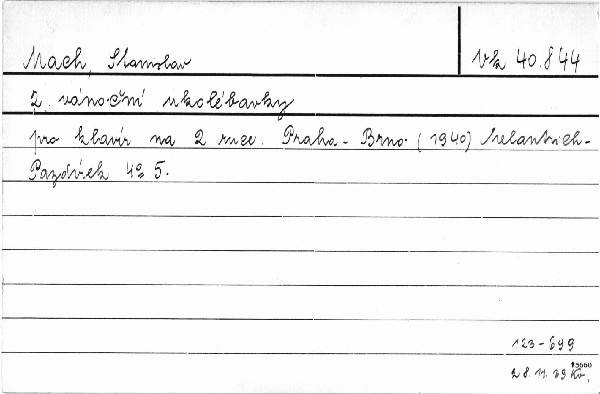 Mach, Stanislav
Vk 40.844
2 vánoční ukolébavky
pro klavír na 2 ruce. Praha - Brno. (1940) Melantrich-
Pazdírek 4° 5.
123-699
28.11.69